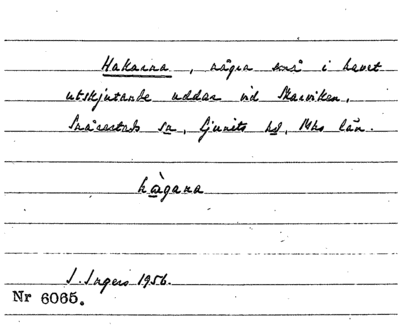 Hakarna, några små i havet
utskjutande uddar vid Skarviken,
Snårestads sn, Ljunits hd, Mhs län.
hàgana
S. Ingers 1956.
Nr 6065.